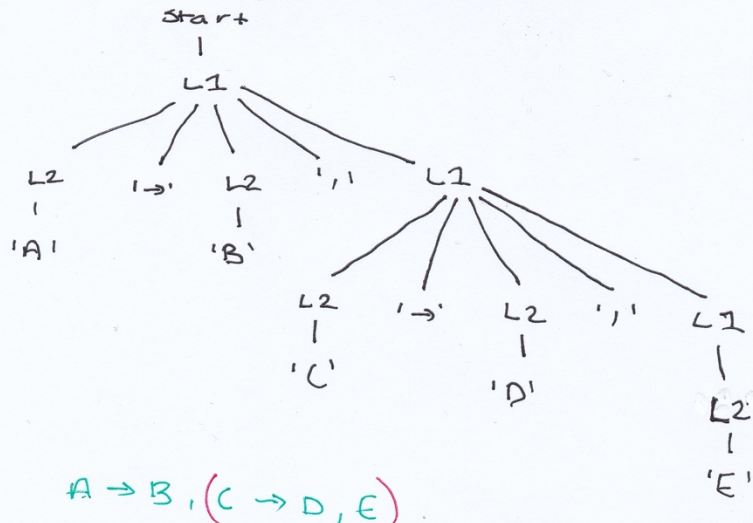 Start
L1
L2 '→' L2 ',' L1
'A' 'B'
L2 '→' L2 ',' L1
'C' 'D' L2
'E'
A → B, (C → D, E)